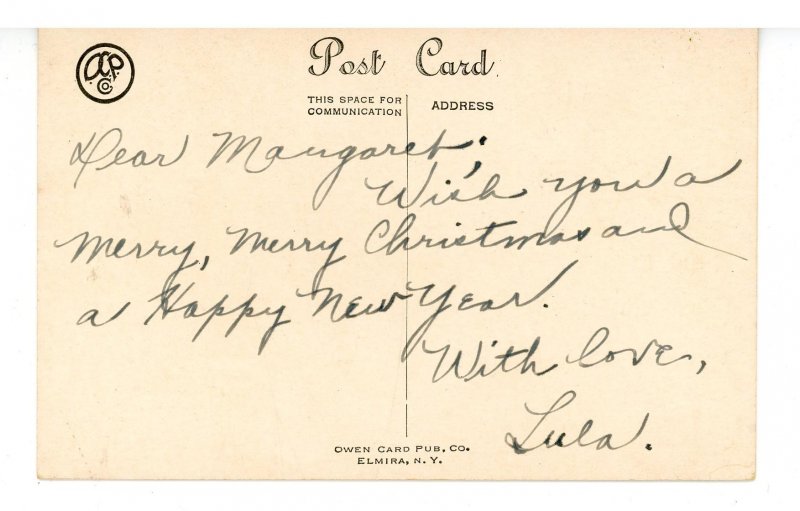 OCP
Co.
Post Card
THIS SPACE FOR
COMMUNICATION
ADDRESS
Dear Margaret:
Wish you a
Merry, Merry Christmas and
a Happy New Year.
With love,
Lula.
OWEN CARD PUB. CO.
ELMIRA, N. Y.